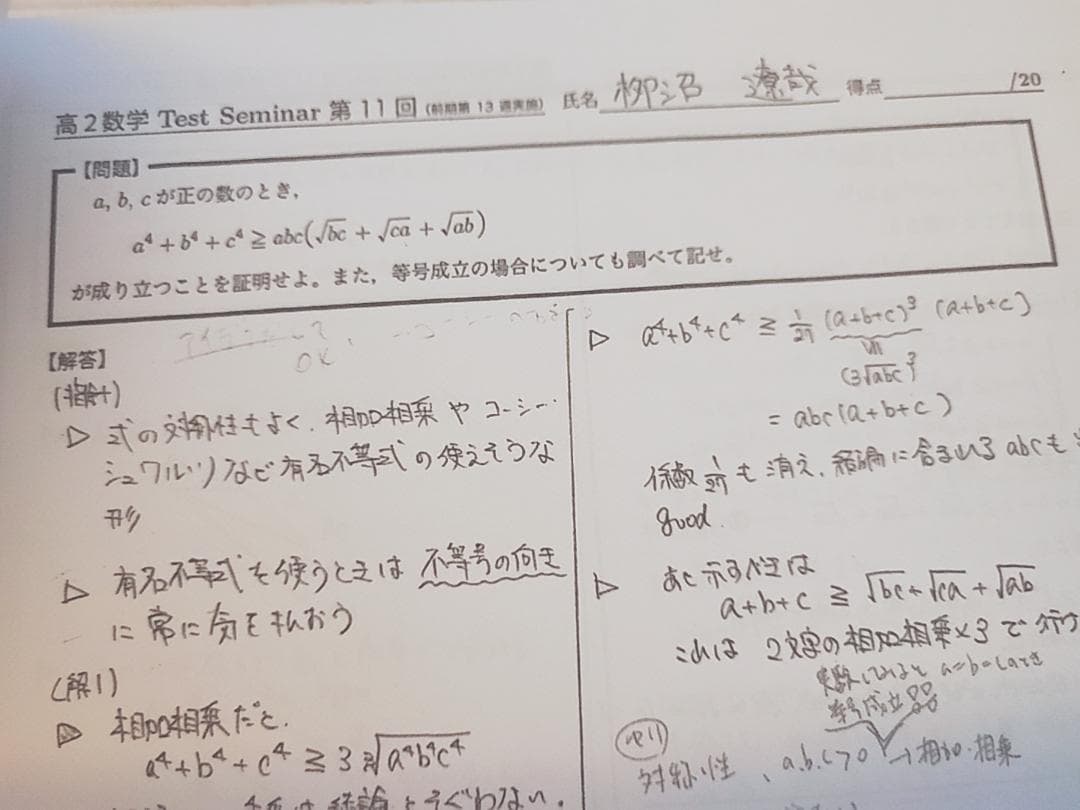 高2数学 Test Seminar 第11回 (前期第13週実施) 氏名 柳沼 遼哉 得点 /20
【問題】
a, b, c が正の数のとき,
a⁴ + b⁴ + c⁴ ≧ abc(√bc + √ca + √ab)
が成り立つことを証明せよ。また, 等号成立の場合についても調べて記せ。
【解答】
OK
(指針)
▷ 式の対称性もよく、相加相乗や コーシー・
シュワルツなど有名不等式の使えそうな
形
▷ 有名不等式を使うときは 不等号の向き
に常に気をはらおう
(解1)
▷ 相加相乗だと、
a⁴+b⁴+c⁴ ≧ 3∛a⁴b⁴c⁴
結論と
▷ a⁴+b⁴+c⁴ ≧ 1/27 (a+b+c)³ (a+b+c)
(3∛abc)³
= abc(a+b+c)
係数 1/27 も消え、結論に含まれる abc も
good.
▷ あと示すべきは
a+b+c ≧ √bc+√ca+√ab
これは 2文字の相加相乗×3 で
実験してみると a=b=cのとき
等号成立
対称性、a.b.c>0 → 相加・相乗